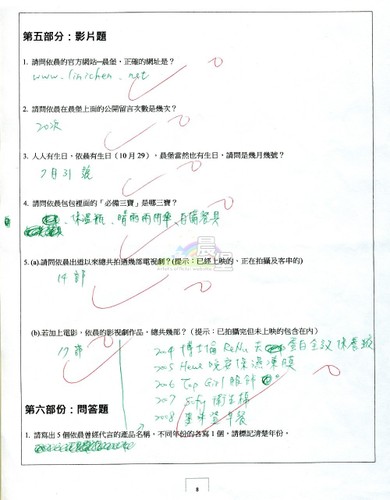 第五部分：影片題
1. 請問依晨的官方網站─晨堡，正確的網址是？
www.linichen.net
2. 請問依晨在晨堡上面的公開留言次數是幾次？
20次
3. 人人有生日，依晨有生日（10 月 29），晨堡當然也有生日，請問是幾月幾號？
7月31號
4. 請問依晨包包裡面的「必備三寶」是哪三寶？
保溫瓶、晴雨兩用傘、自備餐具
晨星
5. (a).請問依晨出道以來總共拍過幾部電視劇？(提示：已經上映的，正在拍攝及客串的)
14部
(b).若加上電影，依晨的影視劇作品，總共幾部？（提示：已拍攝完但未上映的包含在內）
17部
2004 博士倫 ReNu
2005
2006 Top Girl
2007 Sofy 衛生棉
2008
第六部份：問答題
1. 請寫出 5 個依晨曾經代言的產品名稱，不同年份的各寫 1 個，請標記清楚年份。
8